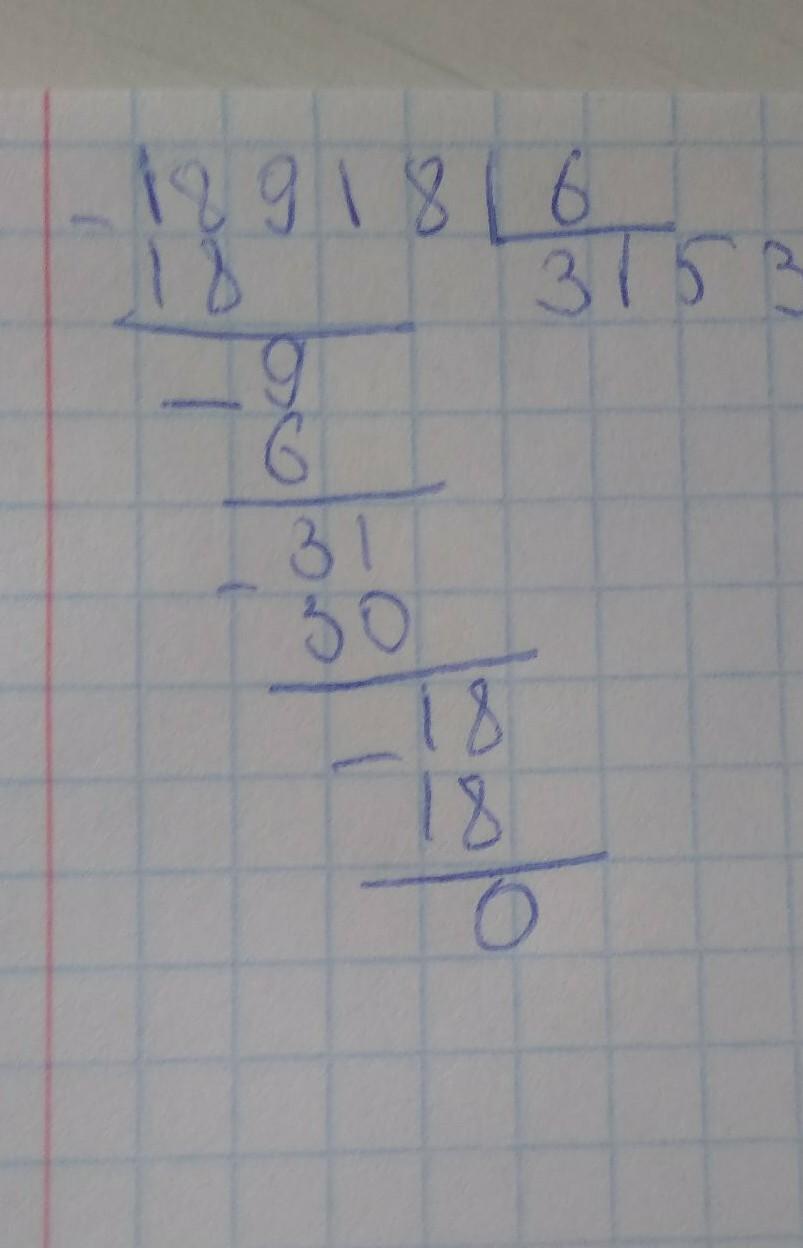 - 18918 | 6
18 3153
- 9
6
- 31
30
- 18
18
0